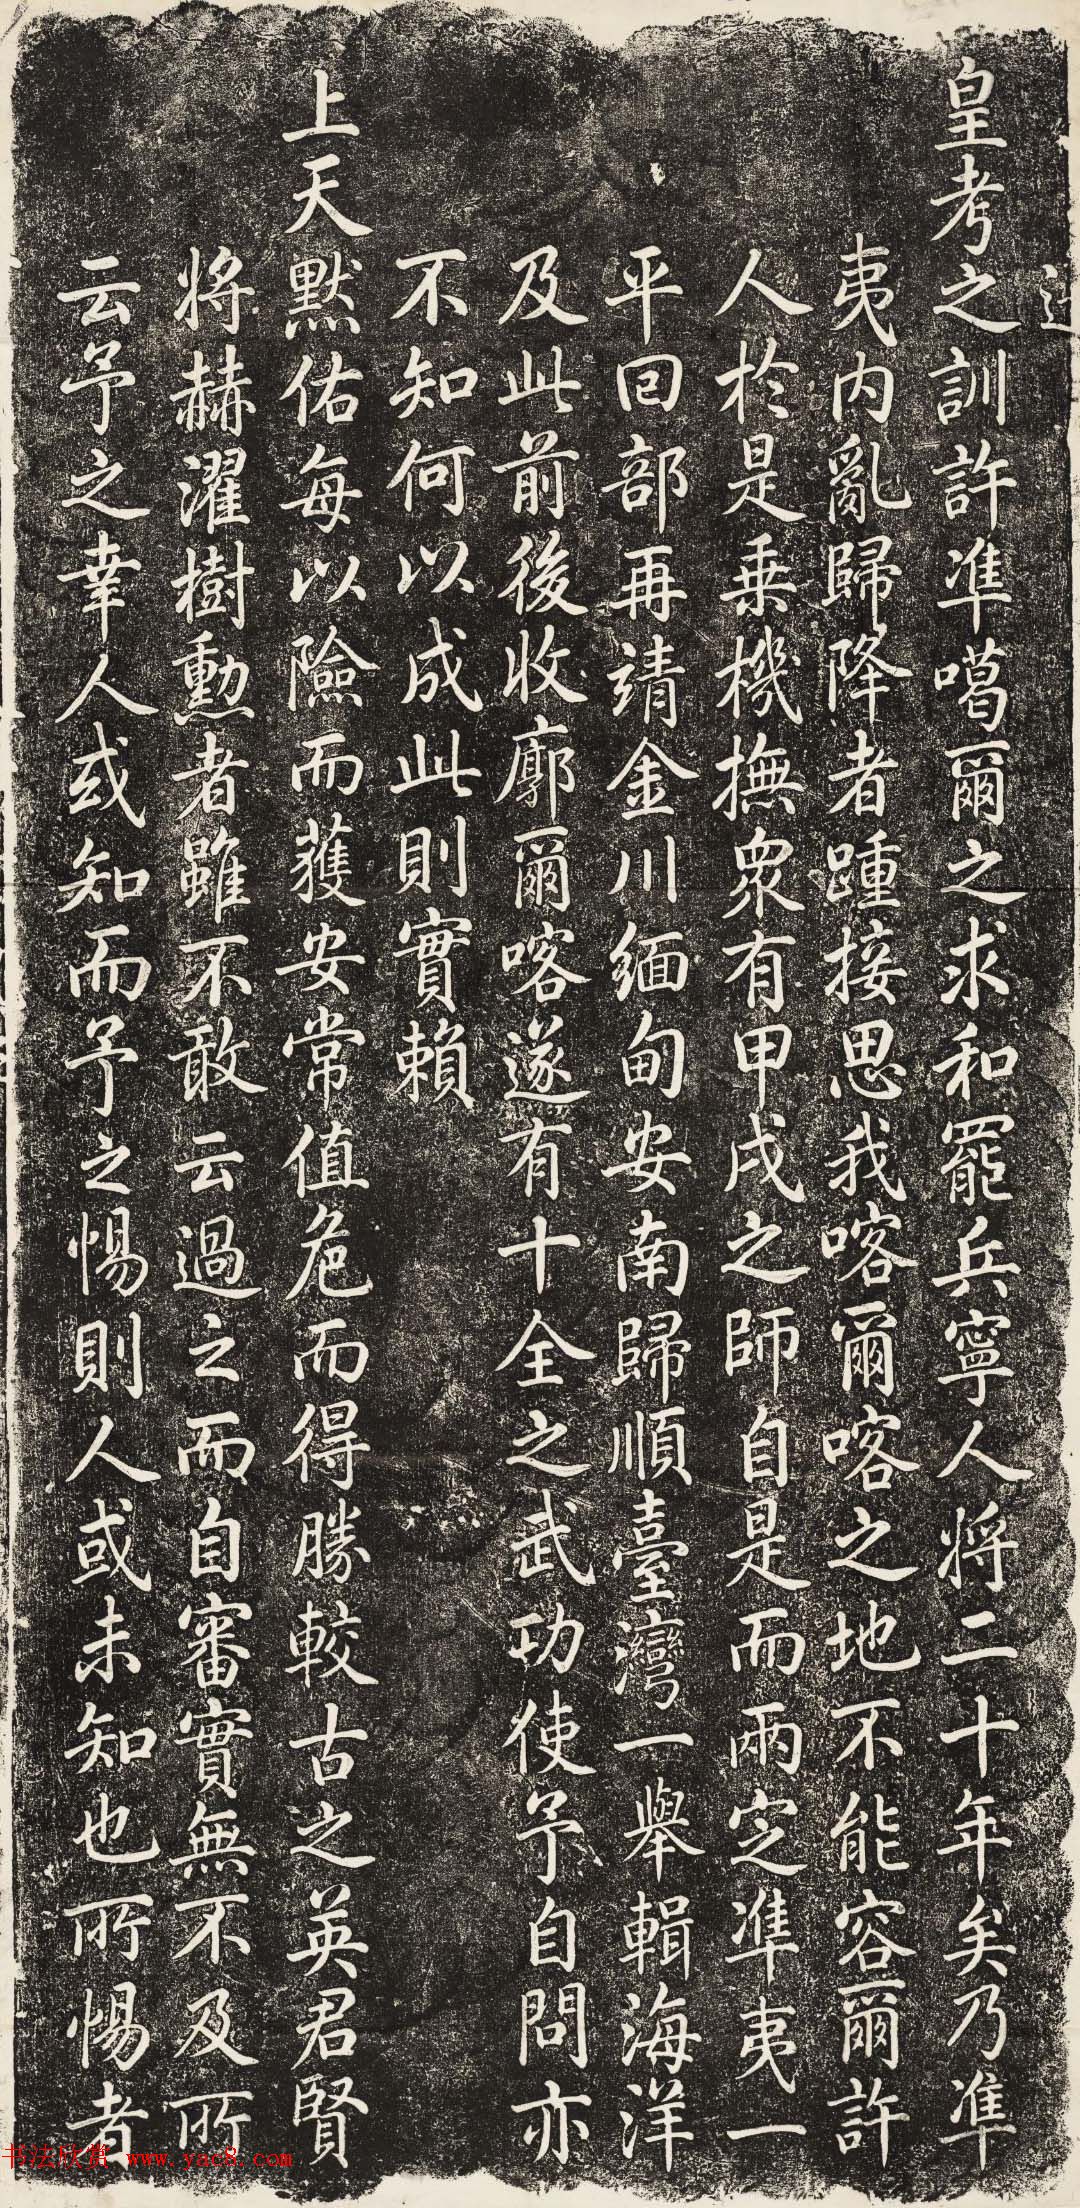 皇考之訓許準噶爾之求和罷兵寧人將二十年矣乃準
夷内亂歸降者踵接思我喀爾喀之地不能容爾許
人於是乗機撫衆有甲戌之師自是而兩定準夷一
平回部再靖金川緬甸安南歸順臺灣一舉輯海洋
及此前後收廓爾喀遂有十全之武功使予自問亦
不知何以成此則實賴
上天默佑每以險而獲安常值危而得勝較古之英君賢
將赫濯樹勳者雖不敢云過之而自審實無不及所
云予之幸人或知而予之惕則人或未知也所惕者
书法欣赏 www.yac8.com